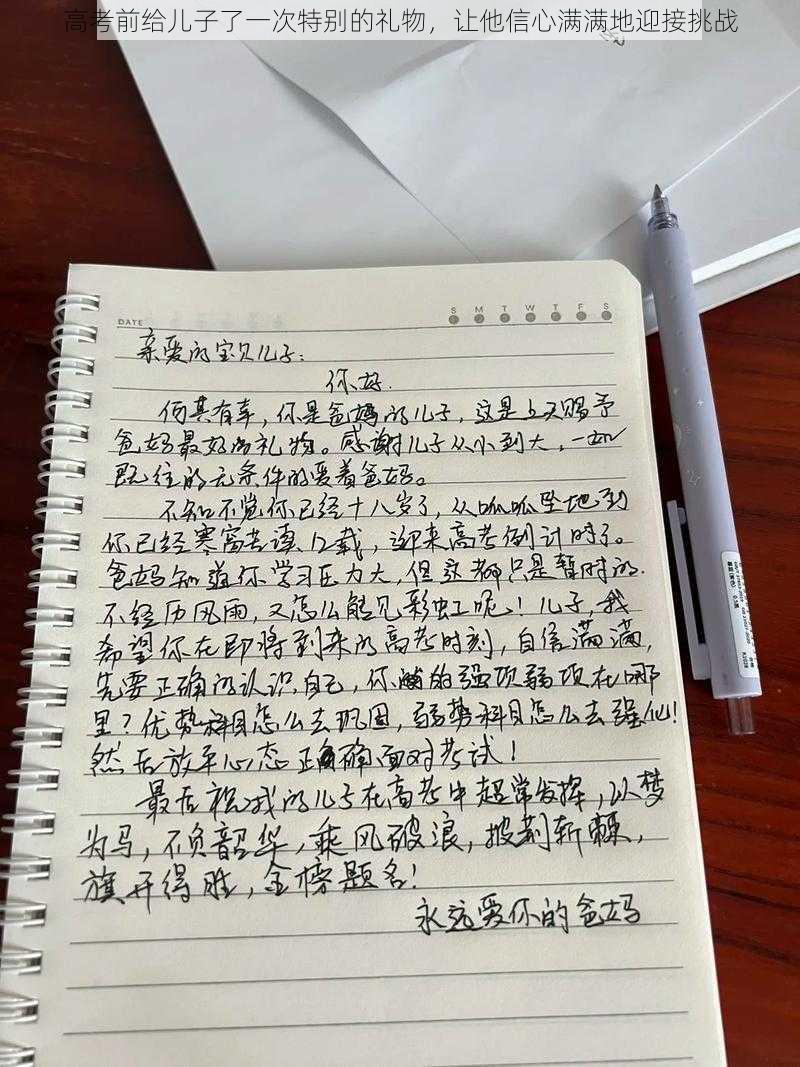 高考前给儿子了一次特别的礼物，让他信心满满地迎接挑战
DATE
S M T W T F S
亲爱的宝贝儿子：
你好.
何其有幸，你是爸妈的儿子，这是上天赐予
爸妈最好的礼物。感谢儿子从小到大，一如
既往的无条件的爱着爸妈。
不知不觉你已经十八岁了，从呱呱坠地到
你已经寒窗苦读12载，迎来高考倒计时了。
爸妈知道你学习压力大，但这都只是暂时的.
不经历风雨，又怎么能见彩虹呢！儿子，我
希望你在即将到来的高考时刻，自信满满，
先要正确的认识自己，你的强项弱项在哪
里？优势科目怎么去巩固，弱势科目怎么去强化！
然后放平心态正确面对考试！
最后祝我的儿子在高考中超常发挥，以梦
为马，不负韶华，乘风破浪，披荆斩棘，
旗开得胜，金榜题名！
永远爱你的爸妈